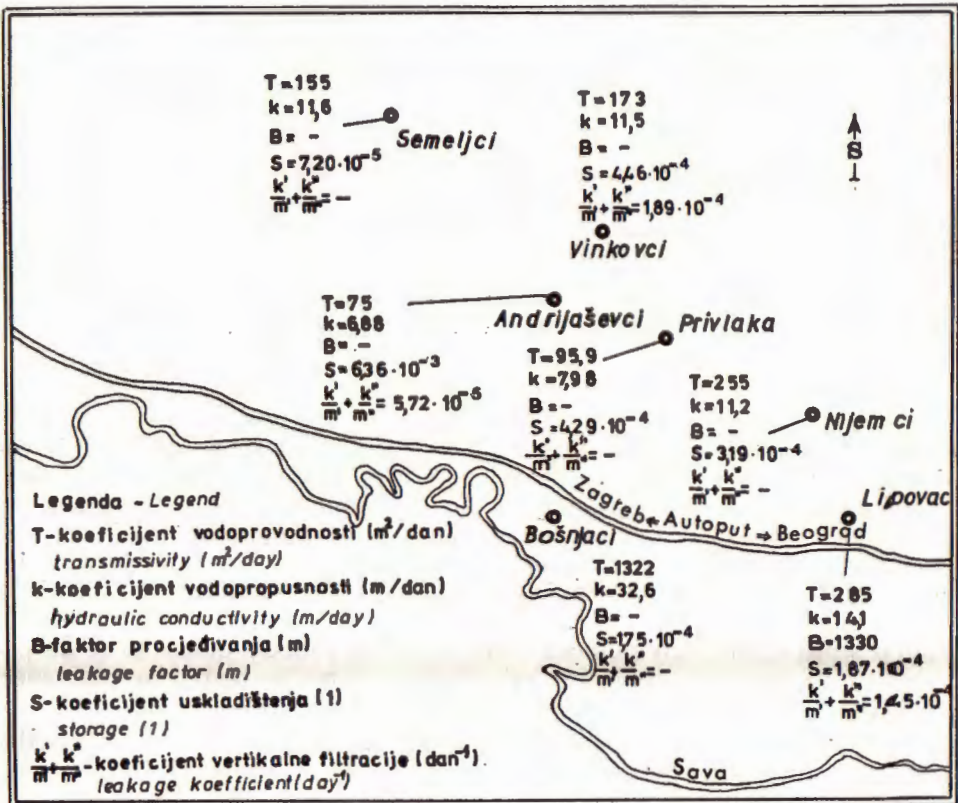 T=155
k=11,6
B= -
S=7,20·10⁻⁵
k'/m' + k"/m" = -
Semeljci
T=173
k=11,5
B= -
S=4,46·10⁻⁴
k'/m' + k"/m" = 1,89·10⁻⁴
Vinkovci
S
T=75
k=6,88
B= -
S=6,36·10⁻³
k'/m' + k"/m" = 5,72·10⁻⁵
Andrijaševci
Privlaka
T=95,9
k=7,98
B= -
S=4,29·10⁻⁴
k'/m' + k"/m" = -
T=255
k=11,2
B= -
S=3,19·10⁻⁴
k'/m' + k"/m" = -
Nijemci
Lipovac
Zagreb ← Autoput → Beograd
Bošnjaci
T=1322
k=32,6
B= -
S=1,75·10⁻⁴
k'/m' + k"/m" = -
T=285
k=14,1
B=1330
S=1,87·10⁻⁴
k'/m' + k"/m" = 1,45·10⁻⁴
Sava
Legenda - Legend
T-koeficijent vodoprovodnosti (m²/dan)
transmissivity (m²/day)
k-koeficijent vodopropusnosti (m/dan)
hydraulic conductivity (m/day)
B-faktor procjeđivanja (m)
leakage factor (m)
S-koeficijent uskladištenja (1)
storage (1)
k'/m' + k"/m" -koeficijent vertikalne filtracije (dan⁻¹).
leakage koefficient (day⁻¹)